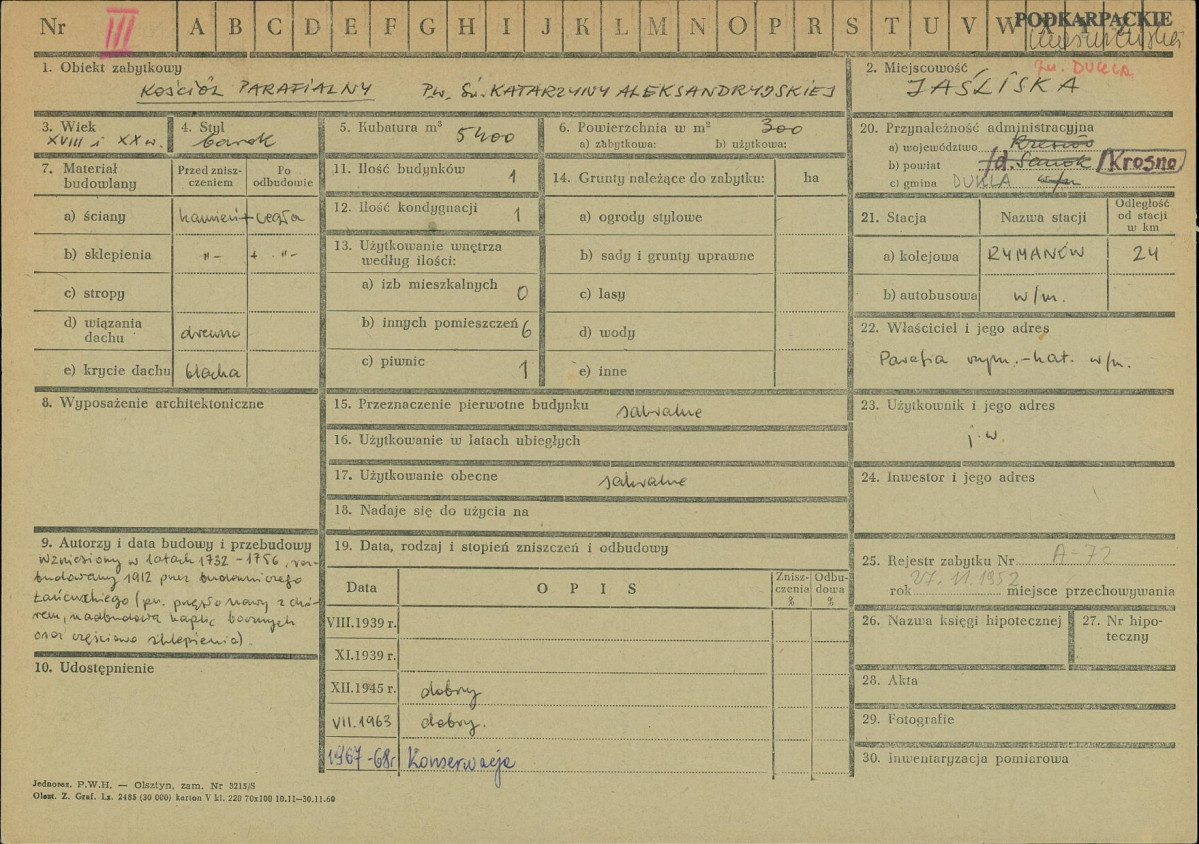 Nr III A B C D E F G H I J K L M N O P R S T U V W
PODKARPACKIE
1. Obiekt zabytkowy
KOŚCIÓŁ PARAFIALNY P.W. ŚW. KATARZYNY ALEKSANDRYJSKIEJ
2. Miejscowość
gm. DUKLA
JAŚLISKA
3. Wiek
XVIII i XX w.
4. Styl
barok
5. Kubatura m³ 5400
6. Powierzchnia w m² 300
a) zabytkowa: b) użytkowa:
20. Przynależność administracyjna
a) województwo Rzeszów
b) powiat /d. Sanok /Krosno
c) gmina DUKLA w/m
7. Materiał budowlany
Przed zniszczeniem
Po odbudowie
a) ściany kamień + cegła
b) sklepienia -"- + -"-
c) stropy
d) wiązania dachu drewno
e) krycie dachu blacha
11. Ilość budynków 1
12. Ilość kondygnacji 1
13. Użytkowanie wnętrza według ilości:
a) izb mieszkalnych 0
b) innych pomieszczeń 6
c) piwnic 1
14. Grunty należące do zabytku: ha
a) ogrody stylowe
b) sady i grunty uprawne
c) lasy
d) wody
e) inne
21. Stacja
Nazwa stacji
Odległość od stacji w km
a) kolejowa RYMANÓW 24
b) autobusowa w/m.
22. Właściciel i jego adres
Parafia rzym.-kat. w/m.
8. Wyposażenie architektoniczne
15. Przeznaczenie pierwotne budynku sakralne
16. Użytkowanie w latach ubiegłych
17. Użytkowanie obecne sakralne
18. Nadaje się do użycia na
23. Użytkownik i jego adres
j.w.
24. Inwestor i jego adres
9. Autorzy i data budowy i przebudowy
Wzniesiony w latach 1732 - 1756, roz-
budowany 1912 przez budowniczego
(pn. przęsło nawy z chó-
rem, nadbudowa kaplic bocznych
oraz częściowo sklepienia).
10. Udostępnienie
19. Data, rodzaj i stopień zniszczeń i odbudowy
Data
OPIS
Zniszczenia %
Odbudowa %
VIII.1939 r.
XI.1939 r.
XII.1945 r. dobry
VII.1963 dobry.
1967-68r Konserwacja
25. Rejestr zabytku Nr A-72
rok 27.11.1952 miejsce przechowywania
26. Nazwa księgi hipotecznej
27. Nr hipoteczny
28. Akta
29. Fotografie
30. Inwentaryzacja pomiarowa
Jednoraz. P.W.H. — Olsztyn, zam. Nr 3215/S
Olszt. Z. Graf. Lz. 2485 (30 000) karton V kl. 220 70x100 10.11—30.11.60